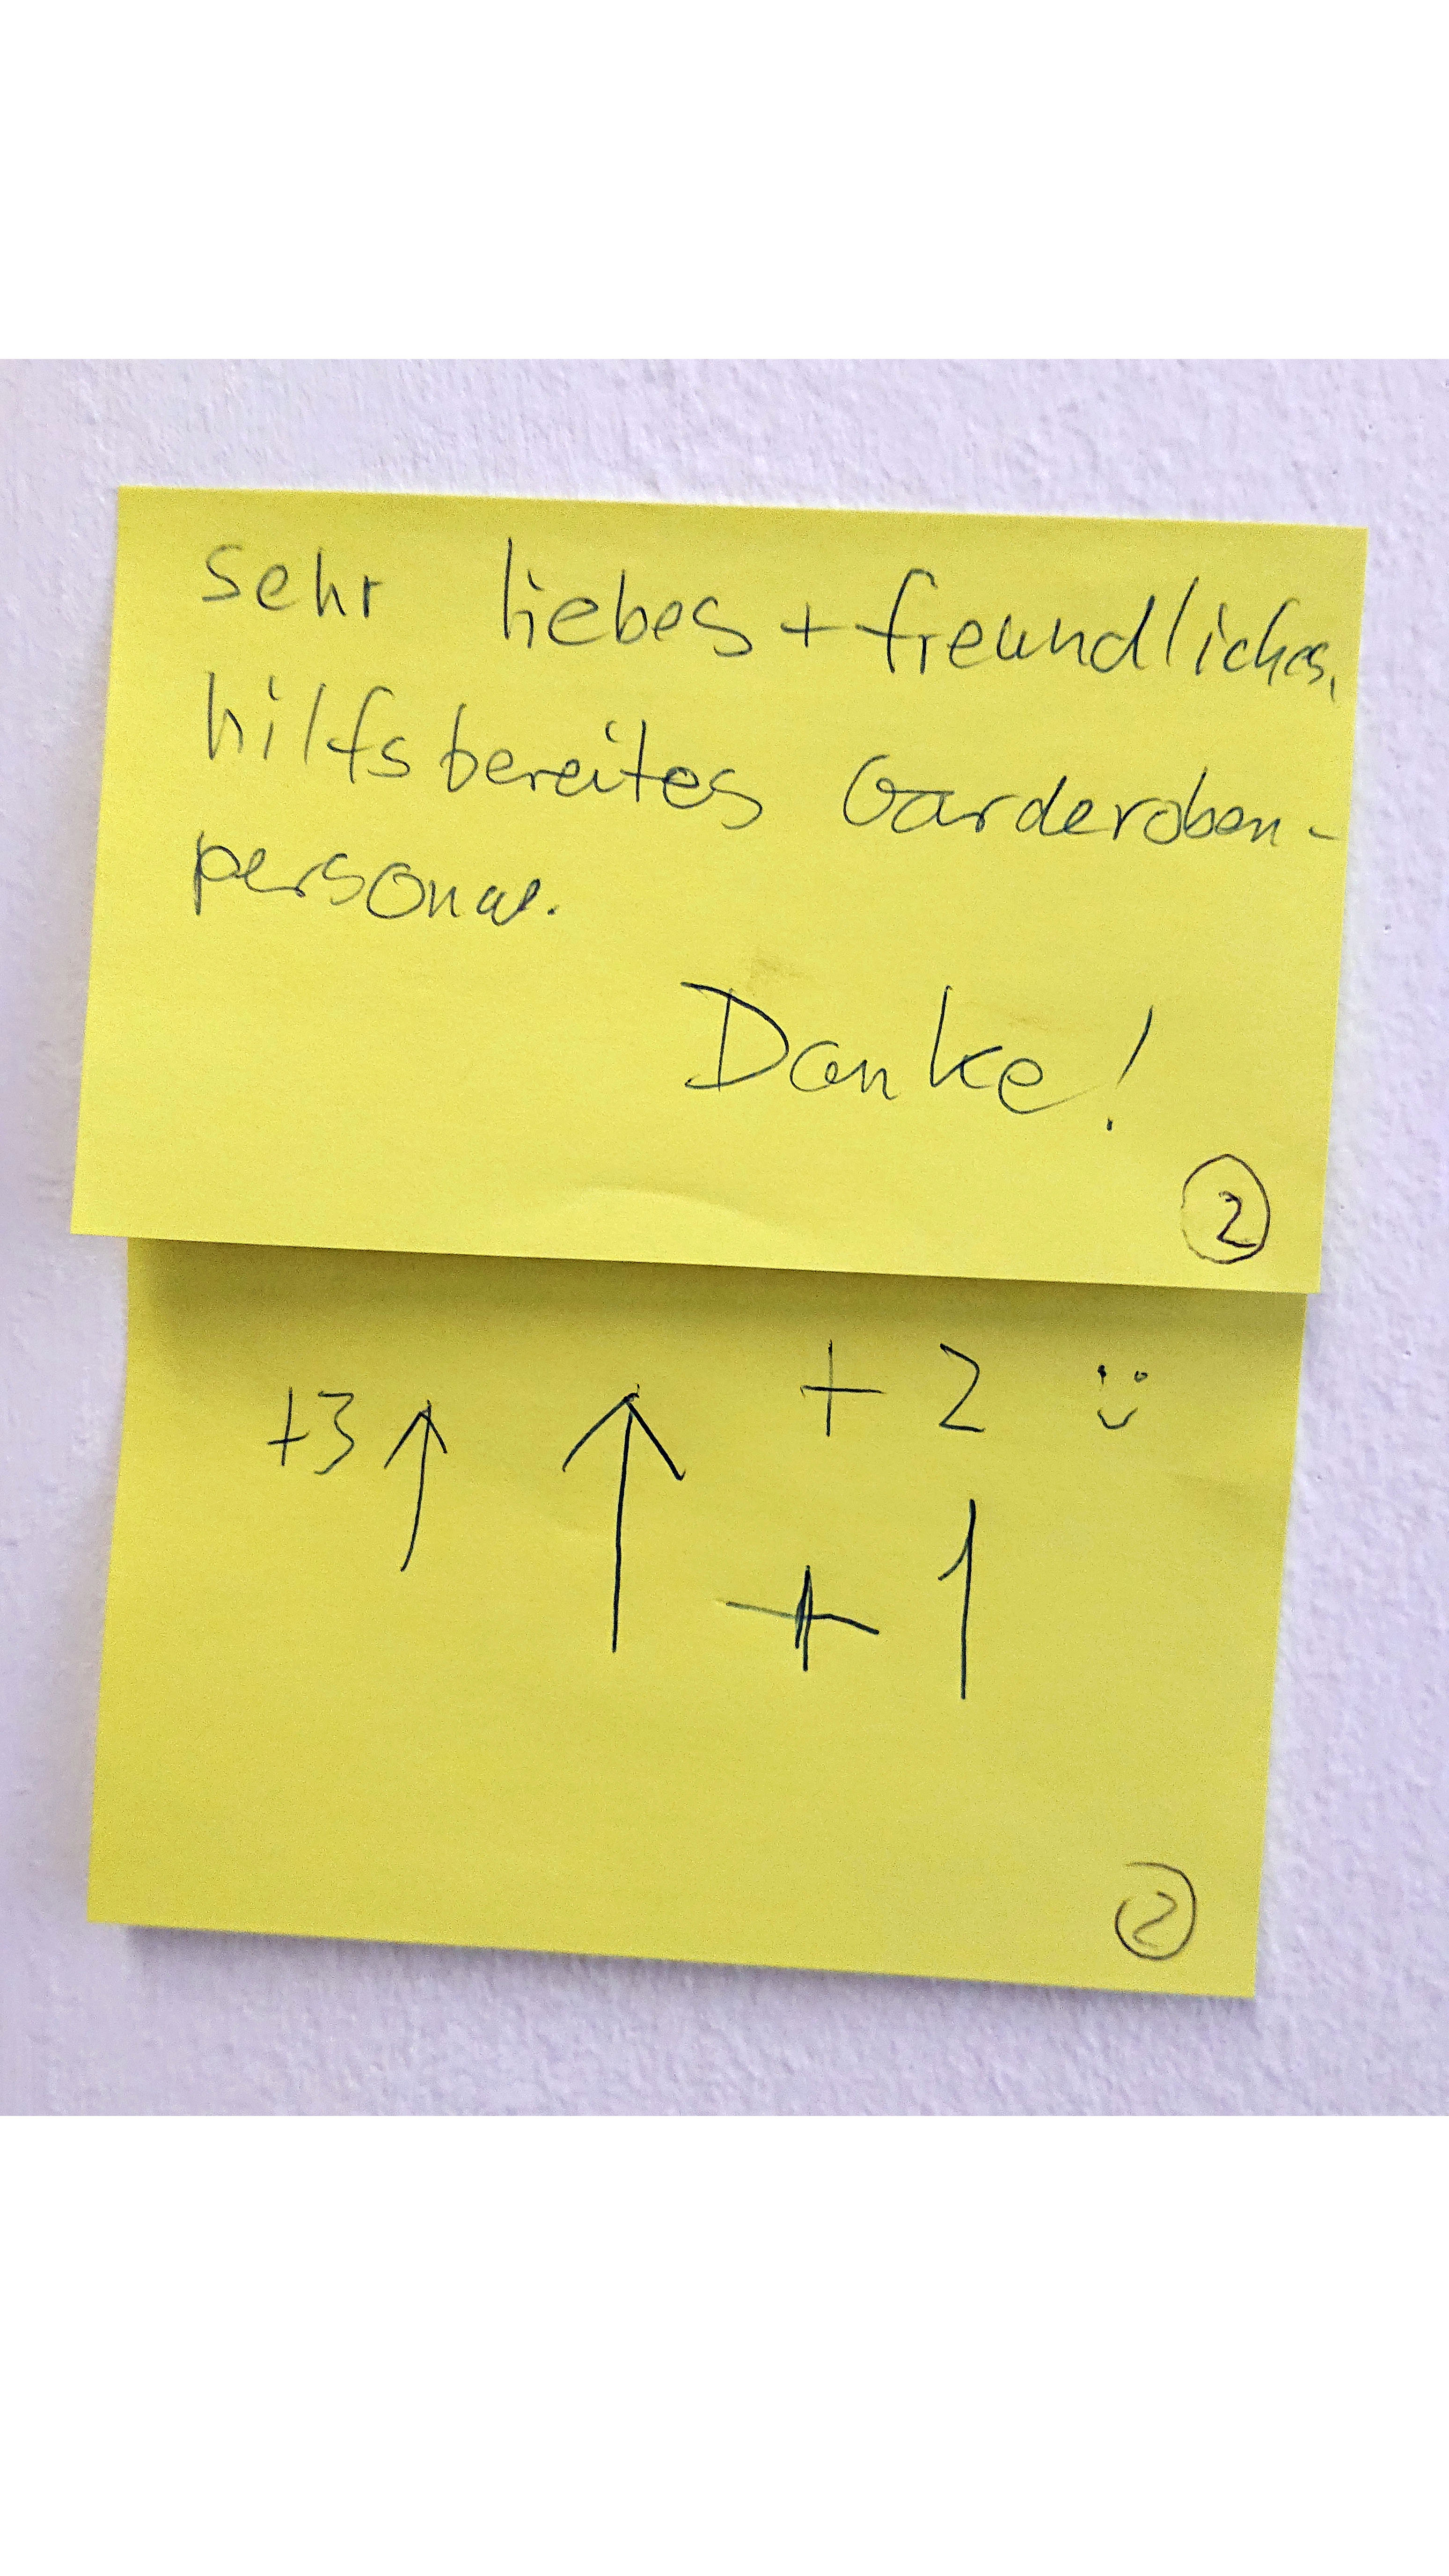 sehr liebes + freundliches,
hilfsbereites Garderoben-
personal.
Danke!
2
+3 ↑ ↑ + 2 :)
+ 1
2